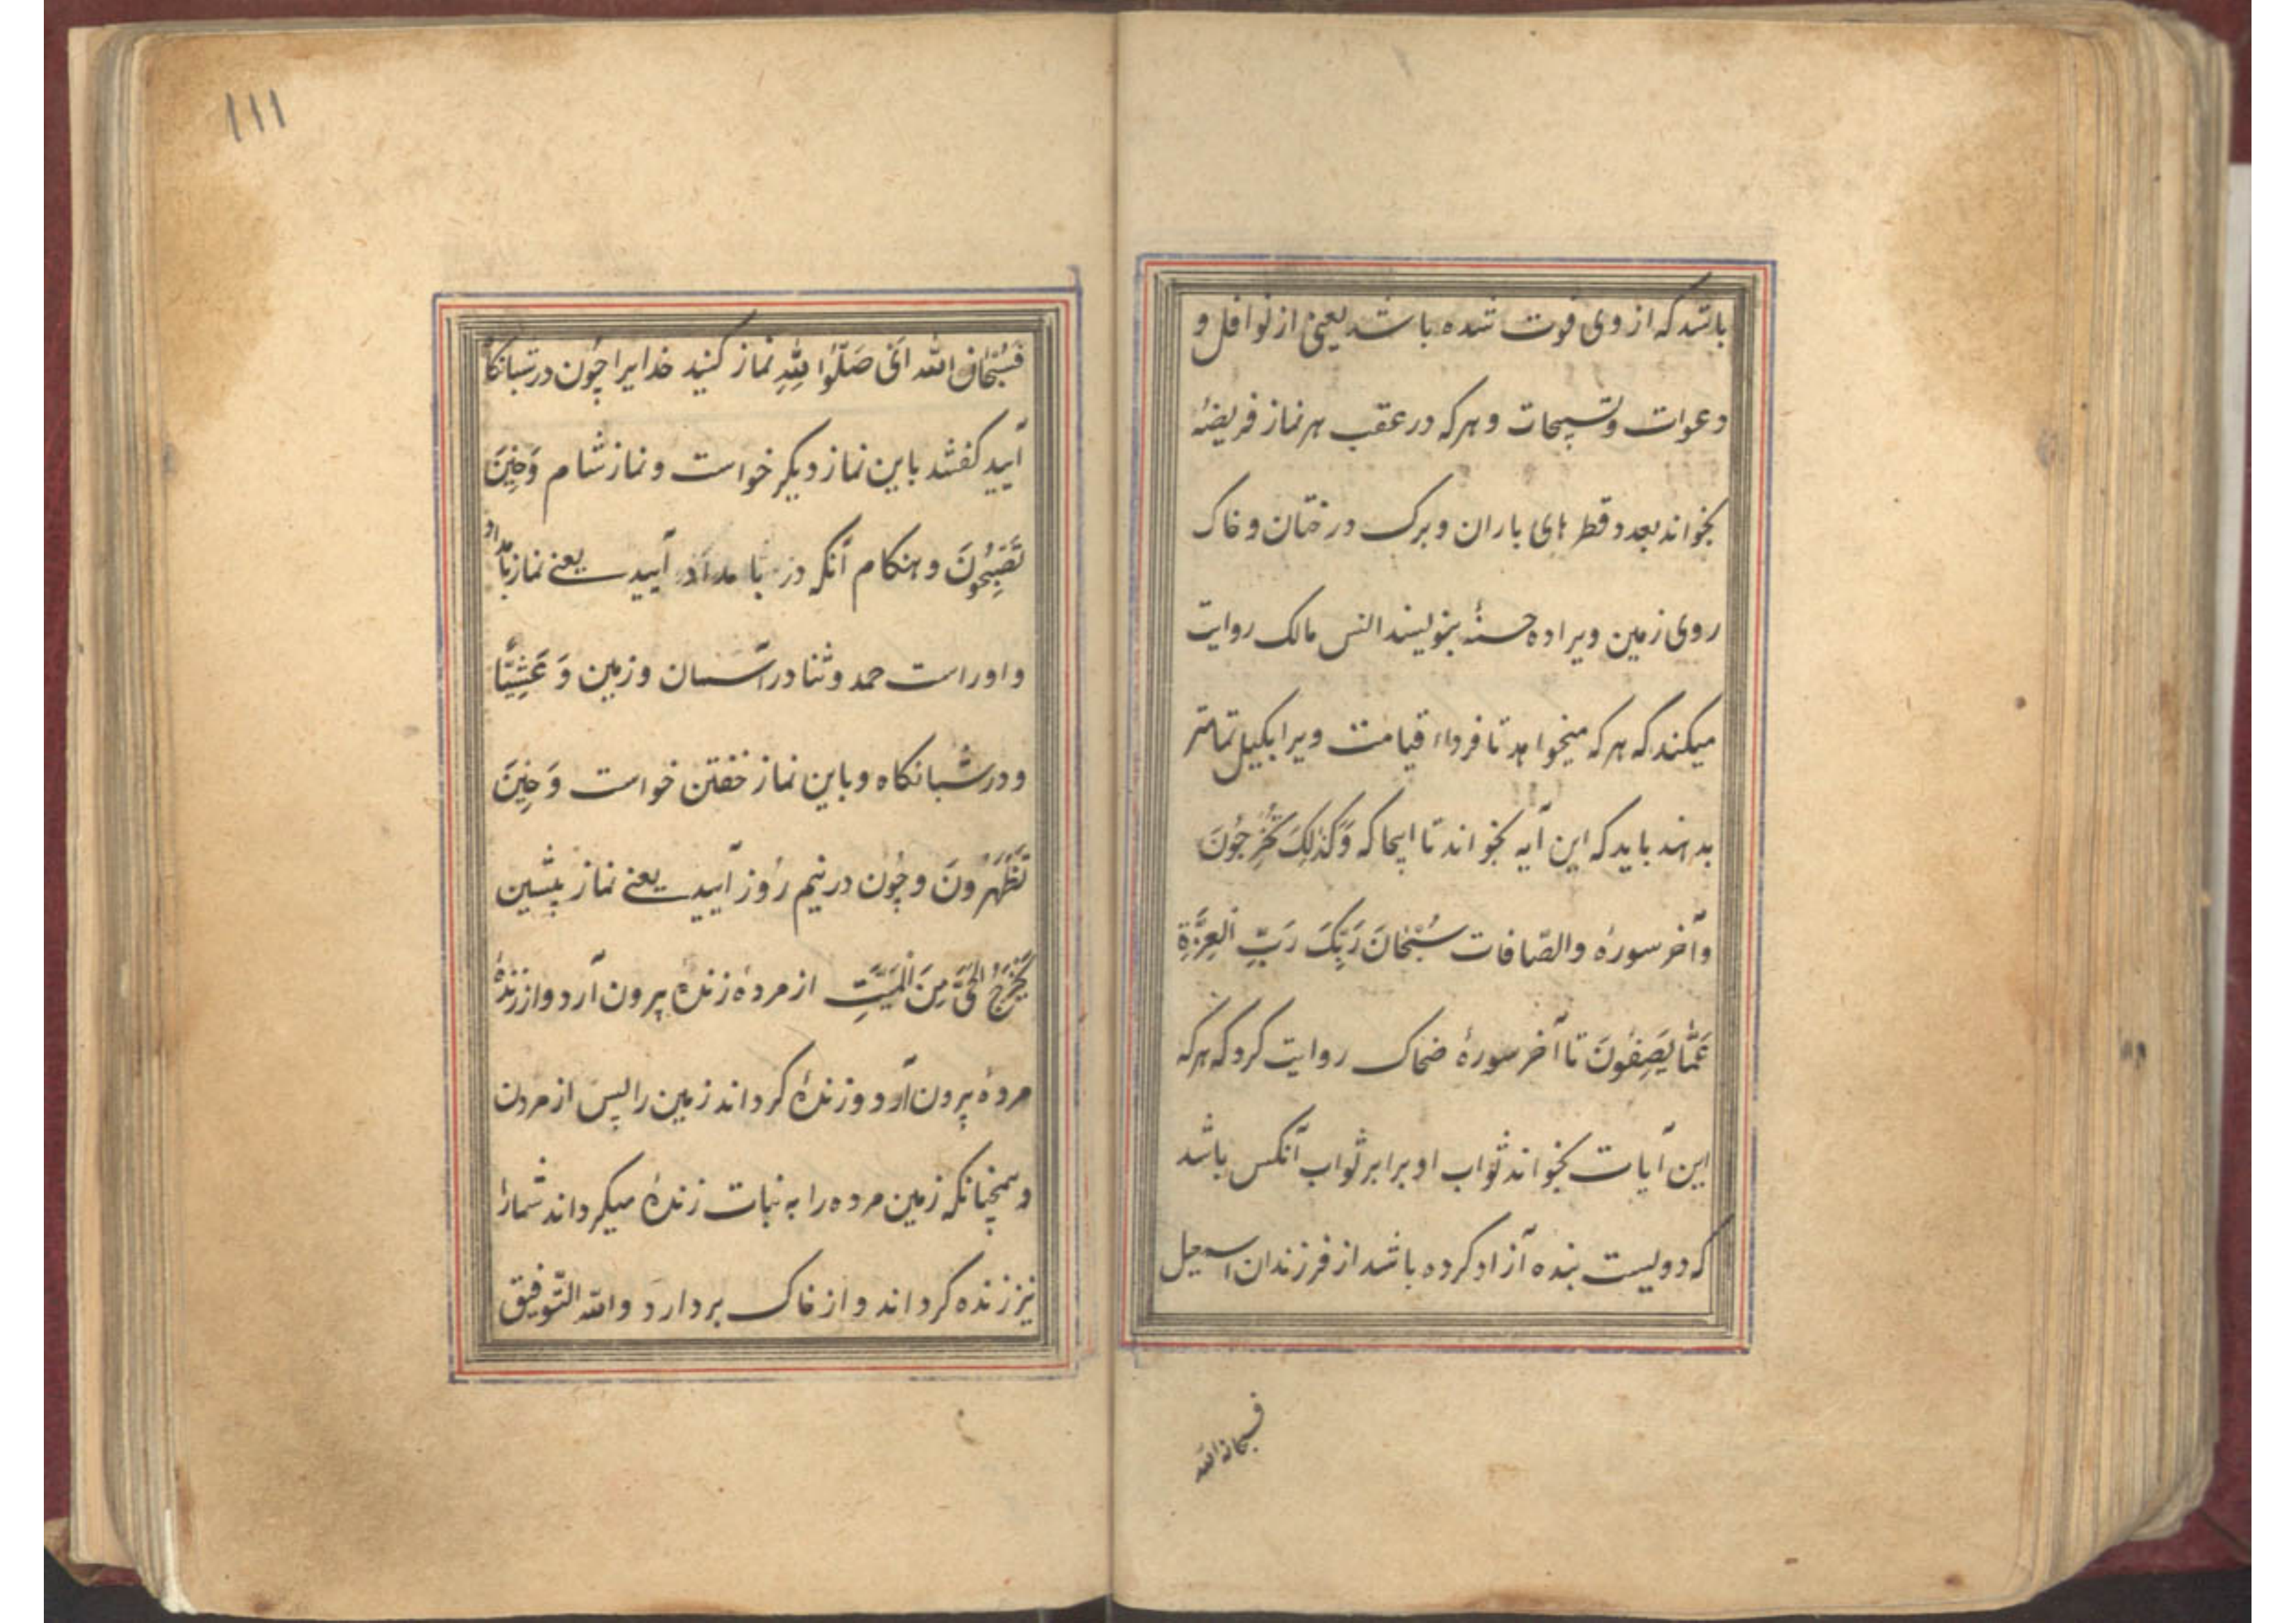 باشد که از وی فوت شده باشد یعنی از نوافل و
دعوات و تسبیحات و هرکه در عقب هر نماز فریضهٔ
بخواند بعدد قطرهای باران و برک درختان و خاک
روی زمین ویرا ده حسنهٔ بنویسند انس مالک روایت
میکند که هرکه میخواهد تا فرداء قیامت ویرا بکیل تمامتر
بدهند باید که این آیه بخواند تا اینجا که وَکَذٰلِکَ تُخْرَجُونَ
وآخر سورهٔ والصّافات سُبْحَانَ رَبِّکَ رَبِّ الْعِزَّةِ
عَمَّا یَصِفُونَ تا آخر سورهٔ ضحاک روایت کرد که هرکه
این آیات بخواند ثواب او برابر ثواب آنکس باشد
که دویست بنده آزاد کرده باشد از فرزندان اسمعیل
فسبحان الله
فَسُبْحَانَ الله اَیْ صَلُّوا لِلّٰهِ نماز کنید خدایرا چُون در شبانکاه
آیید کفتند باین نماز دیکر خواست و نماز شام وَحِینَ
تُصْبِحُونَ و هنکام آنکه در بامداد آیید یعنے نماز بامداد
واوراست حمد وثنا در آسمان و زمین وَعَشِیًّا
ودر شبانکاه و باین نماز خفتن خواست وَحِینَ
تُظْهِرُونَ و چُون در نیم رُوز آیید یعنے نماز پیشین
یُخْرِجُ الْحَیَّ مِنَ الْمَیِّتِ از مردهٔ زندهٔ بیرون آرد و از زندهٔ
مردهٔ بیرون آرد و زندهٔ کرداند زمین را پس از مردن
و همچنانکه زمین مرده را به نبات زندهٔ میکرداند شمارا
نیز زنده کرداند و از خاک بردارد والله التّوفیق
۱۱۱